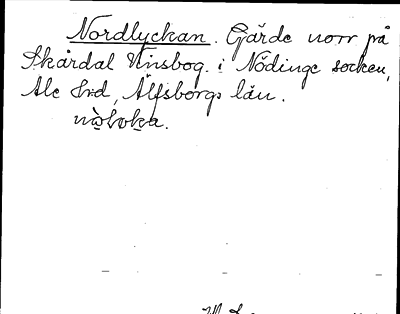 Nordlyckan. Gärde norr på
Skårdal Vinsbog. i Nödinge socken,
Ale hrd, Älfsborgs län.